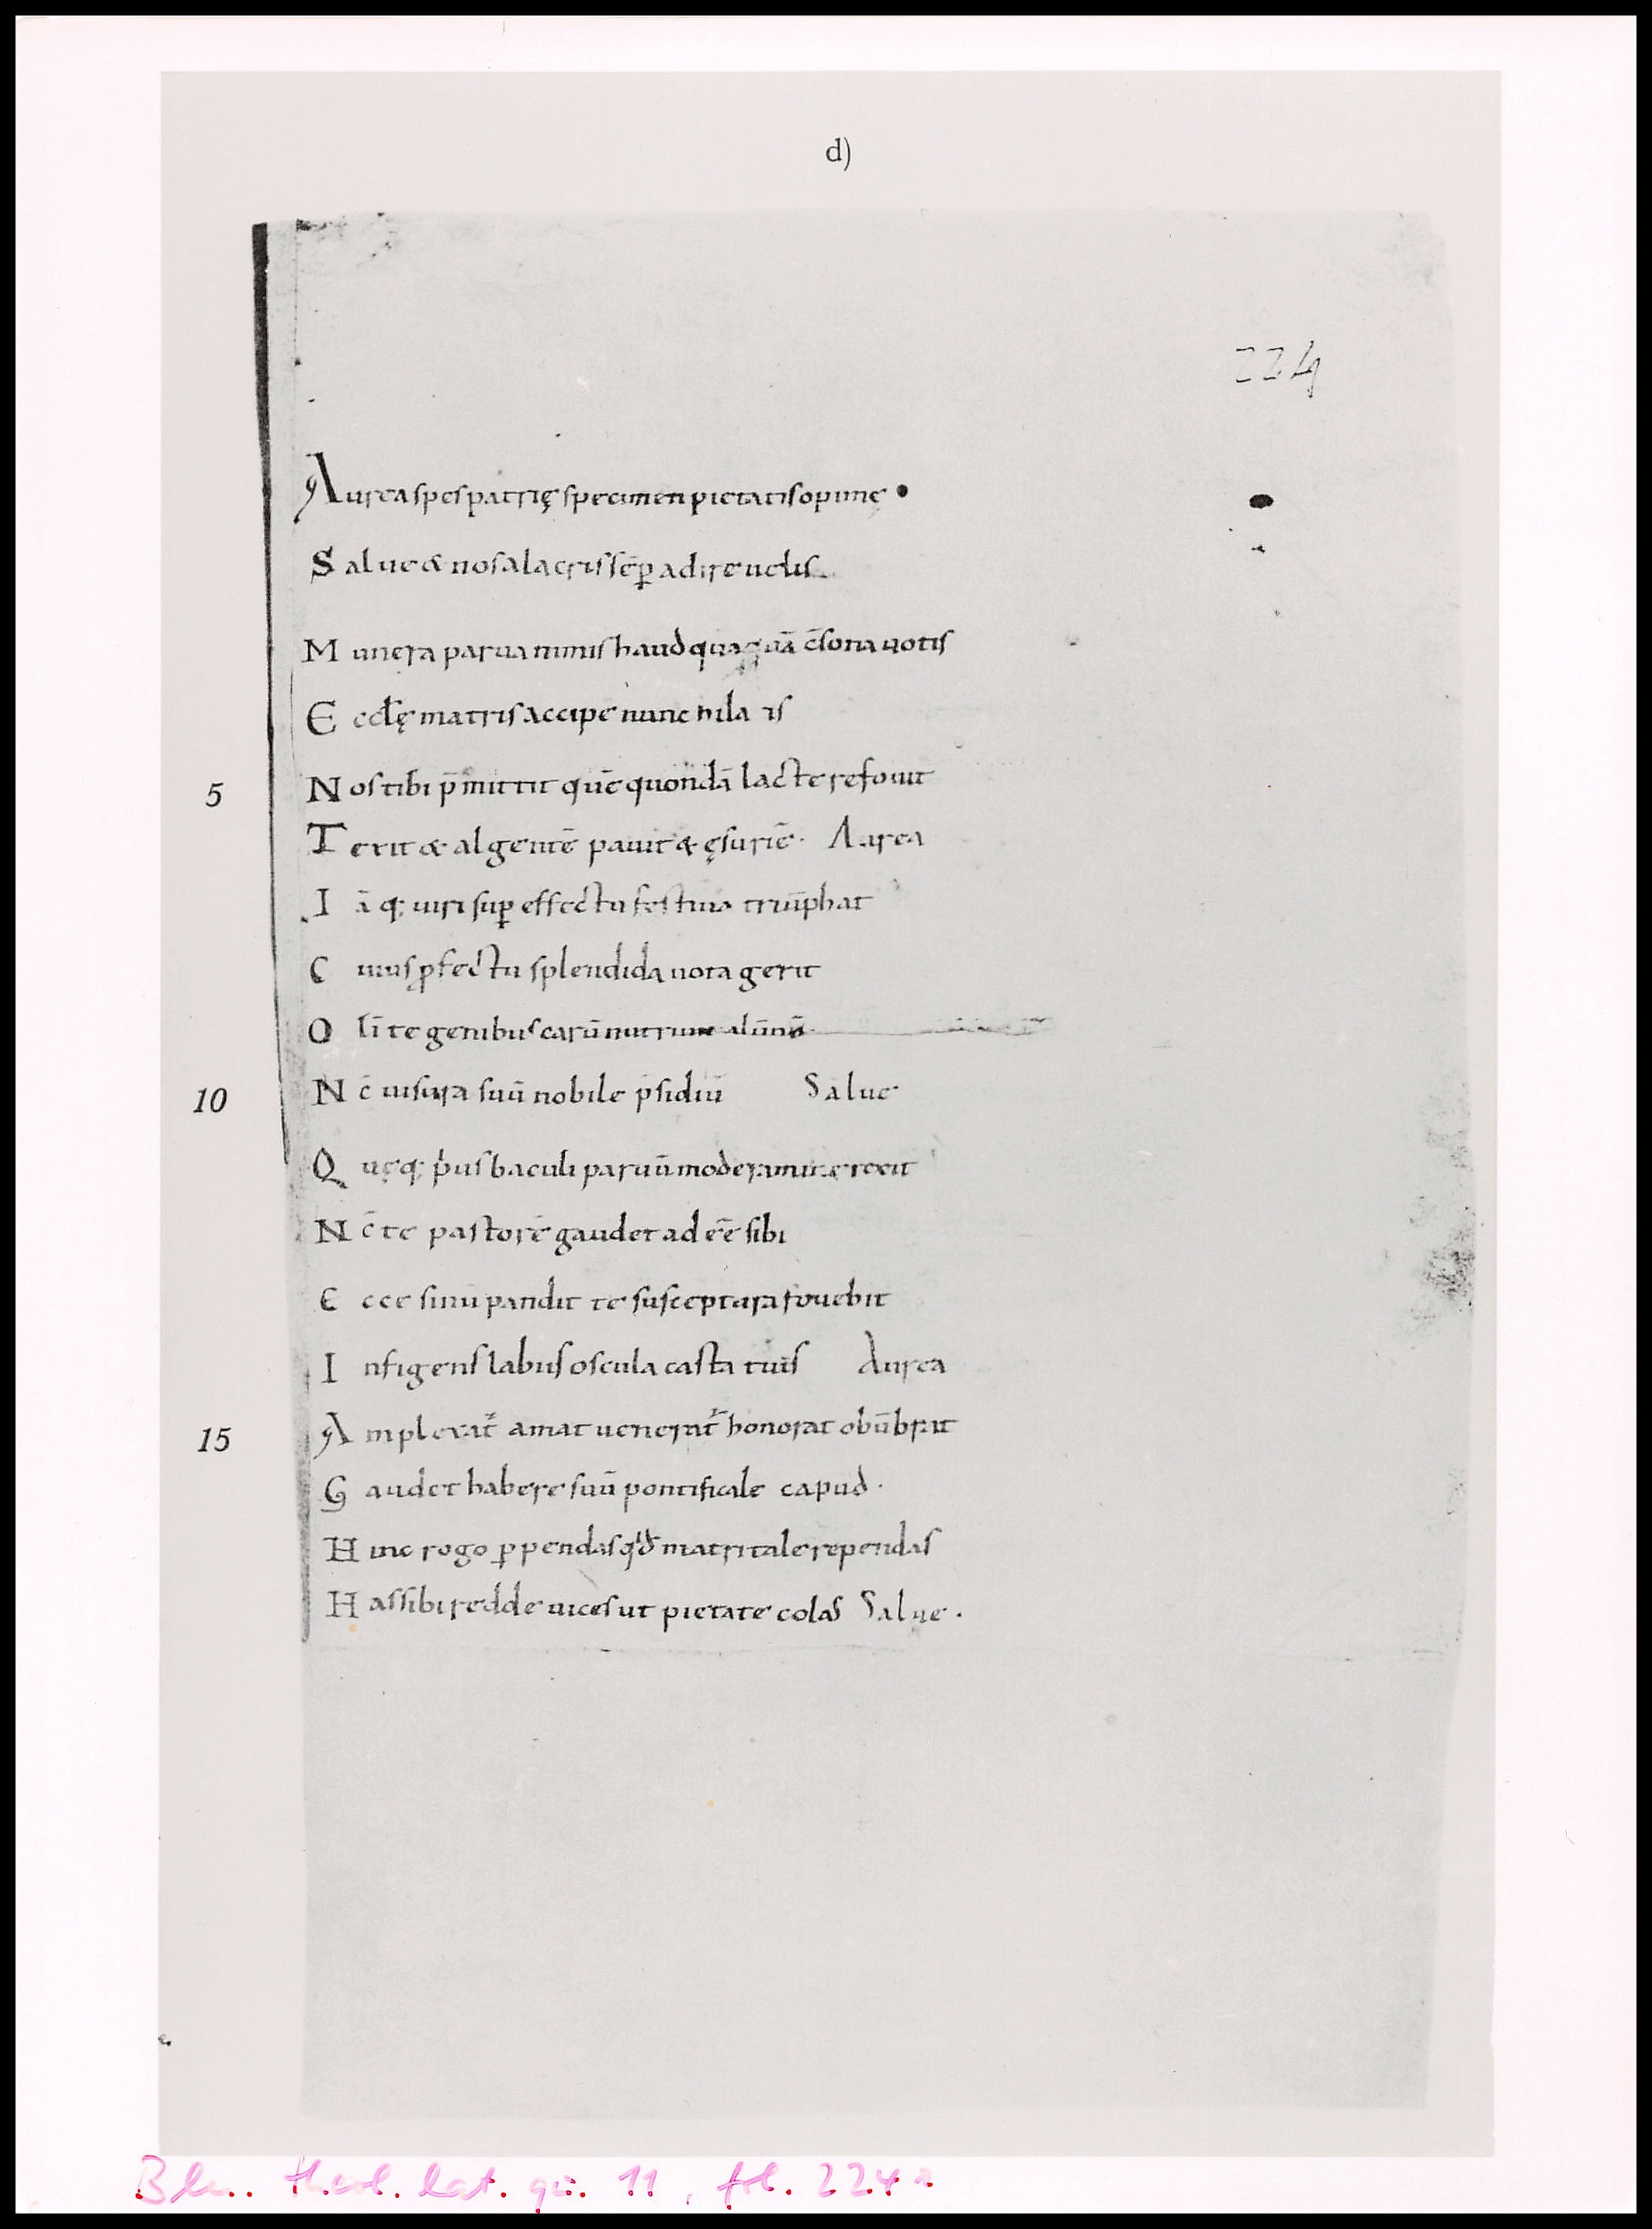 d)
224
Aurea spes patrię specimen pietatis opimę
Salue & nos alacris sēp̱ adire uelis
Munera parua nimis haud quaquā c̄sona uotis
Eccłę matris accipe nunc hila is
5 Nos tibi p̄mittit quē quondā lacte refouit
Texit & algentē pauit & ęsuriē. Aurea
Iāq; uiri sup̱ effectu festiua triūphat
Cuius ꝓfectu splendida uota gerit
Olī te genibus carū nutriuit alūnū
10 Nc̄ uisura suū nobile p̄sidiū Salue
Quęq; p̍us baculi paruū moderamine rexit
Nc̄ te pastorē gaudet adeē̄ sibi
Ecce sinū pandit te susceptura fouebit
Infigens labiis oscula casta tuis Aurea
15 Amplexat̄ amat uenerat̄ honorat obūbrat
Gaudet habere suū pontificale capud.
Hinc rogo ꝑpendas qđ matri tale rependas
Has sibi redde uices ut pietate colas Salue.
Bln. theol. lat. qu. 11, fol. 224r